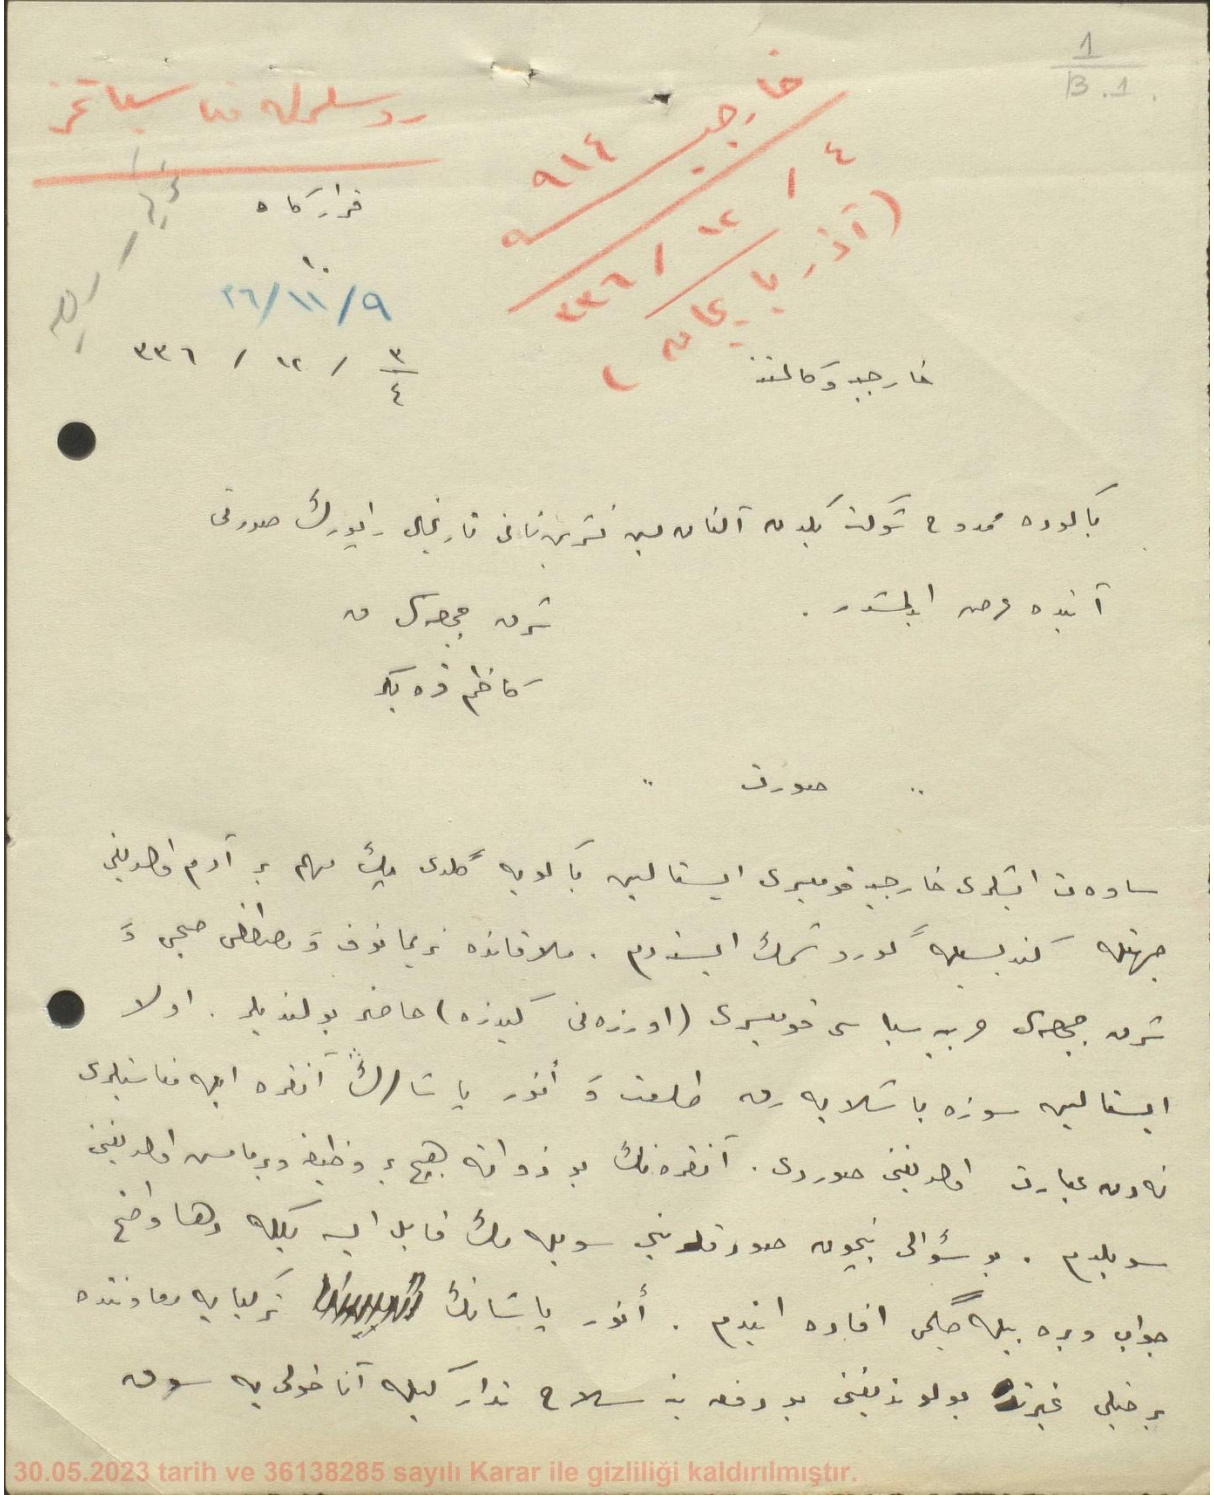 1
B.1.
روسلرله مناسباتمز
خارجيه
٩١٤
٤ / ١٢ / ٣٣٦
(آذربايجان)
قرارگاه
٩/١١/٣٦
٣/٤ / ١٢ / ٣٣٦
خارجيه وكالتنه
باكوده ممدوح شوكت بكدن آلنان تشرين ثانى تاريخلى راپورك صورتى
آتيده عرض ايدلمشدر .
شرق جبهه‌سى ق
كاظم قره بكر
" صورت "
ساوه‌ت ايشلرى خارجيه قوميسرى ايستالين باكويه گلدى پك مهم بر آدم اولديغى
جهتله كنديسيله گوروشمك ايستدم . ملاقاتده نريمانوف و مصطفى صبحى و
شرق جبهه‌سى حربيه سياسى قوميسرى (اورژه‌نى كيدزه) حاضر بولنديلر . اولا
ايستالين سوزه باشلايه رق طلعت و أنور پاشالرك آنقره ايله مناسبتلرى
نه‌دن عبارت اولديغنى صوردى . آنقره‌نك بو ذواته هيچ بر وظيفه ويرمامش اولديغنى
سويلدم . بو سؤالى نيچون صورديغنى سويله‌مك قابل ايسه بلكه دها واضح
جواب ويره بيله جگمى افاده ايتدم . أنور پاشانك تركيايه معاونتده
بر خيلى غيرتده بولونديغنى بو دفعه ينه سلاح تداركيله آناطولى يه سوق
30.05.2023 tarih ve 36138285 sayılı Karar ile gizliliği kaldırılmıştır.